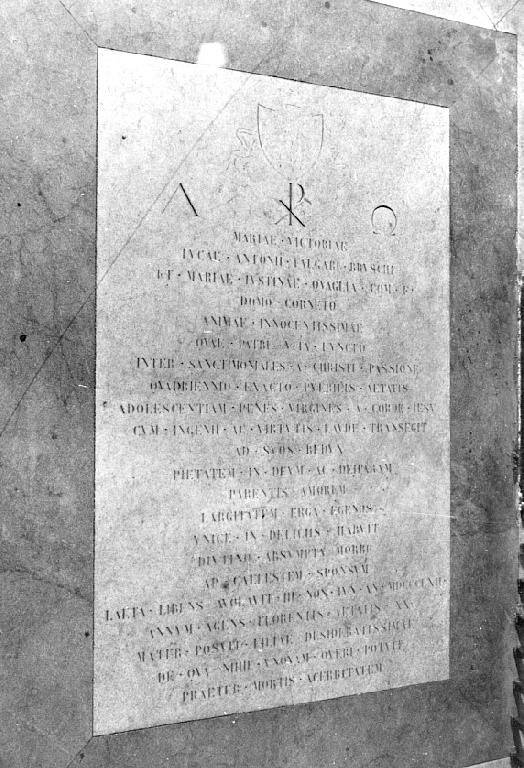 Α ☧ Ω
MARIAE · VICTORIAE
LVCAE · ANTONII · FALGARI · BRVSCHI
ET · MARIAE · IVSTINAE · QVAGLIA · COM · F ·
DOMO · CORNETO
ANIMAE · INNOCENTISSIMAE
QVAE · PATRE · VIX · FVNCTO
INTER · SANCTIMONIALES · A · CHRISTI · PASSIONE
QVADRIENNIO · EXACTO · PVERILIS · AETATIS
ADOLESCENTIAM · PENES · VIRGINES · A · CORDE · IESV
CVM · INGENII · AC · VIRTVTIS · LAVDE · TRANSEGIT
AD · SVOS · REDVX
PIETATEM · IN · DEVM · AC · DEIPARAM
PARENTIS · AMOREM
LARGITATEM · ERGA · EGENOS
VNICE · IN · DELICIIS · HABVIT
DIVTINO · ABSVMPTA · MORBO
AD · CAELESTEM · SPONSVM
LAETA · LIBENS · AVOLAVIT · III · NON · IVN · AN ·
ANNVM · AGENS · FLORENTIS · AETATIS · XX
MATER · POSVIT · FILIAE · DESIDERATISSIMAE
DE · QVA · NIHIL · VNQVAM · QVERI · POTVIT
PRAETER · MORTIS · ACERBITATEM